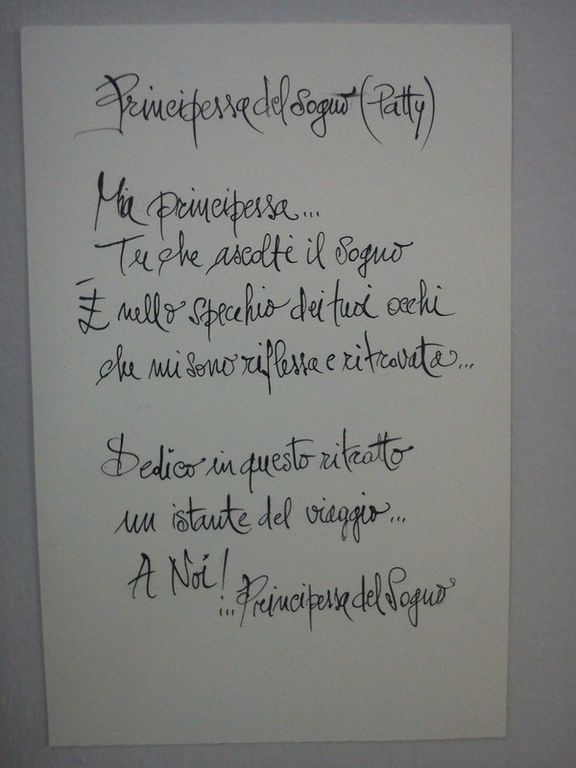 Principessa del Sogno (Patty)
Mia principessa...
Tu che ascolti il Sogno
È nello specchio dei tuoi occhi
che mi sono riflessa e ritrovata...
Dedico in questo ritratto
un istante del viaggio...
A Noi!
...Principessa del Sogno